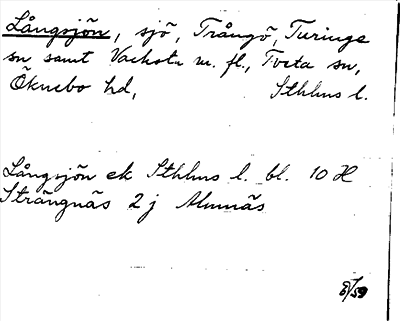 Långsjön, sjö, Trångö, Turinge
sn samt Vacksta m. fl., Tveta sn,
Öknebo hd, Sthlms l.
Långsjön ek Sthlms l. bl. 10 H
Strängnäs 2 j Almnäs
8/59